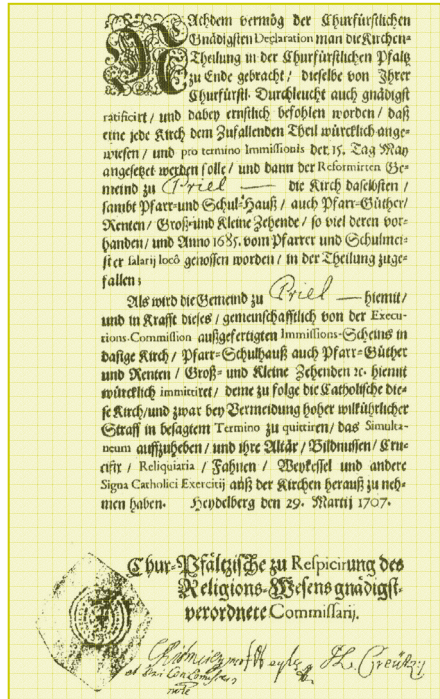 NAchdem vermög der Churfürstlichen
Gnädigsten Declaration man die Kirchen=
Theilung in der Churfürstlichen Pfaltz
zu Ende gebracht / dieselbe von Ihrer
Churfürstl. Durchleucht auch gnädigst
ratificirt / und dabey ernstlich befohlen worden / daß
eine jede Kirch dem Zufallenden Theil würcklich ange=
wiesen / und pro termino Immissionis der 15. Tag May
angesetzt werden solle / und dann der Reformirten Ge=
meind zu Priel — die Kirch daselbsten /
sambt Pfarr=und Schul=Hauß / auch Pfarr=Güther /
Renten / Groß=und Kleine Zehende / so viel deren vor=
handen / und Anno 1685. vom Pfarrer und Schulmei=
ster salarij locô genossen worden / in der Theilung zuge=
fallen;
Als wird die Gemeind zu Priel — hiemit /
und in Krafft dieses / gemeinschafftlich von der Execu=
tions-Commission außgefertigten Immissions-Scheins in
dasige Kirch / Pfarr=Schulhauß auch Pfarr=Güther
und Renten / Groß= und Kleine Zehenden ꝛc. hiemit
würcklich immittiret / deme zu folge die Catholische die=
se Kirch / und zwar bey Vermeidung hoher wilkührlicher
Straff in besagtem Termino zu quittiren / das Simulta=
neum auffzuheben / und ihre Altär / Bildnussen / Cru=
cifix / Reliquiaria / Fahnen / Weykessel und andere
Signa Catholici Exercitij auß der Kirchen herauß zu neh=
men haben. Heydelberg den 29. Martij 1707.
Chur=Pfältzische zu Respicirung des
Religions=Wesens gnädigst=
verordnete Commissarij.